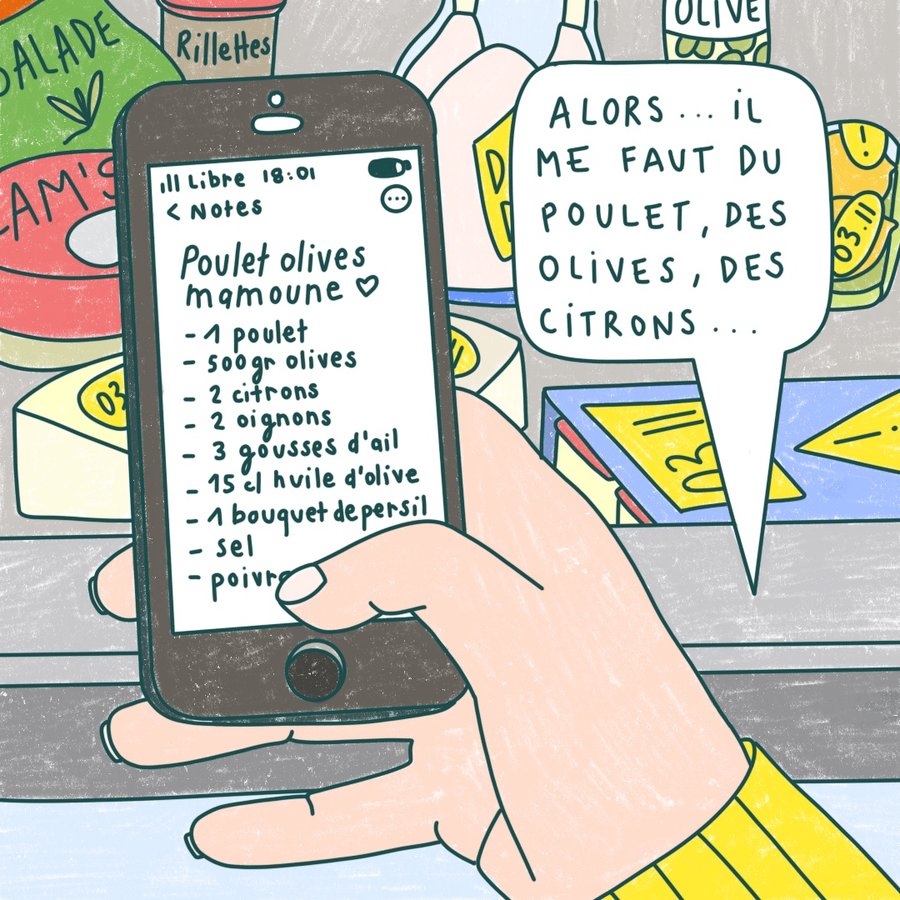 SALADE
Rillettes
OLIVE
ALORS... iL
ME FAUT DU
POULET, DES
OLiVES, DES
CiTRONS...
Libre 18:01
< Notes
Poulet olives
mamoune ♡
- 1 poulet
- 500gr olives
- 2 citrons
- 2 oignons
- 3 gousses d'ail
- 15 cl huile d'olive
- 1 bouquet de persil
- sel
- poivre
LAM'S
!
03.11
03
11
03.11
!